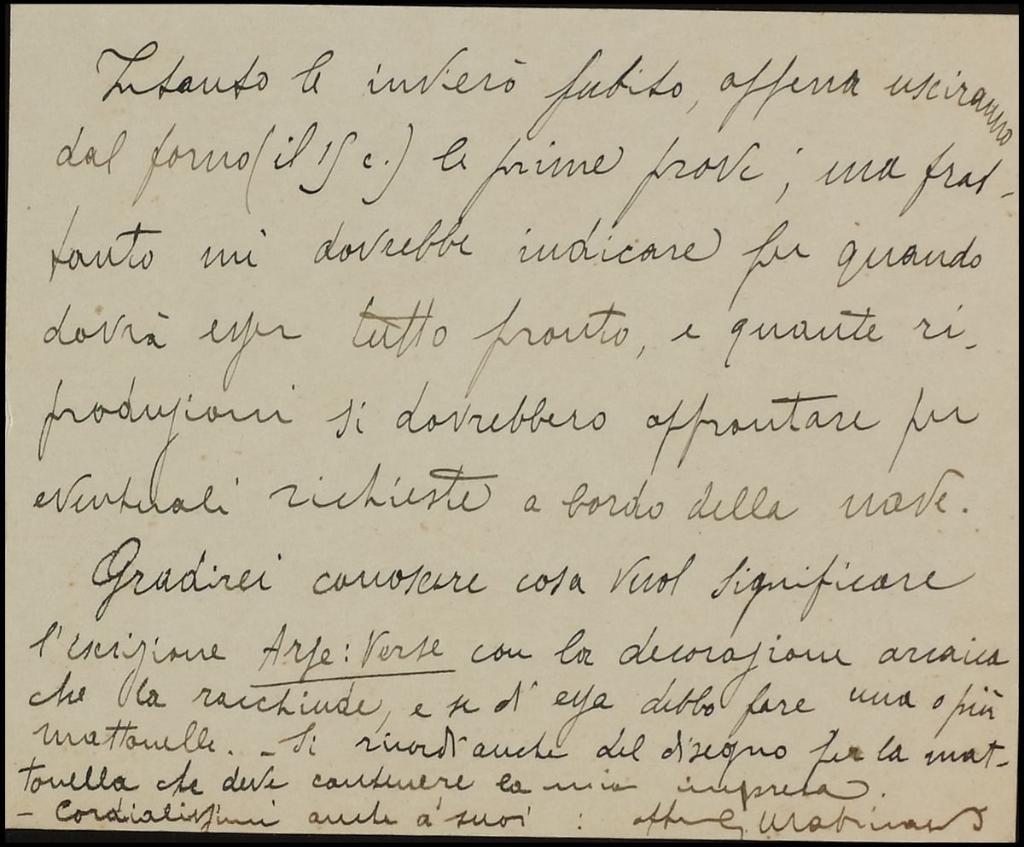 Intanto le invierò subito, appena usciranno
dal forno (il 15 c.) le prime prove; ma frat-
tanto mi dovrebbe indicare per quando
dovrà esser tutto pronto, e quante ri-
produzioni si dovrebbero affrontare per
eventuali richieste a bordo della nave.
Gradirei conoscere cosa vuol significare
l'iscrizione Arse: Verse con la decorazione arcaica
che la racchiude, e se d'essa debbo fare una o più
mattonelle. - Si ricordi anche del disegno per la mat-
tonella che deve contenere la mia impresa.
- Cordialissimi anche a' suoi: aff